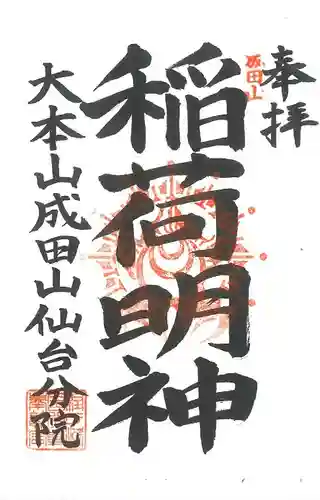 奉拝
成田山
稲荷明神
大本山成田山仙台分院